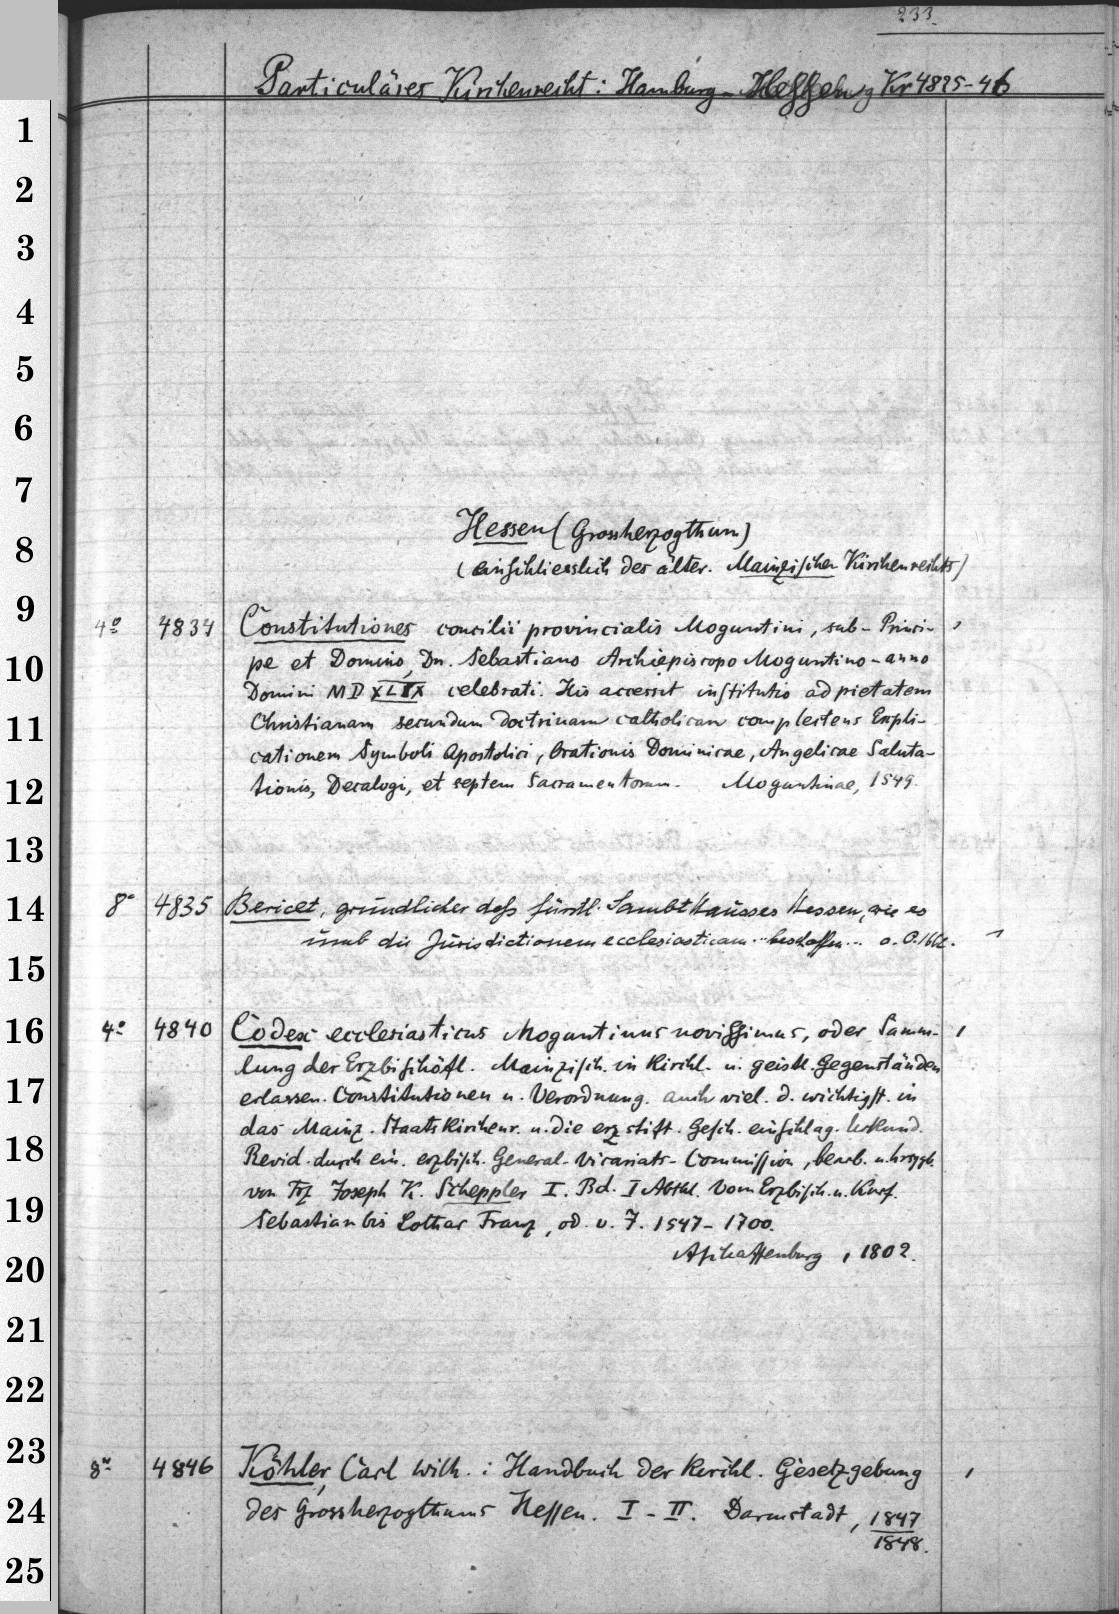 233.
Particuläres Kirchenrecht: Hamburg - Hessen Kr 4825-46
1
2
3
4
5
6
7
Hessen (Grossherzogthum)
8
(einschliesslich des älter. Mainzischen Kirchenrechts)
9
4º 4834 Constitutiones concilii provincialis Moguntini, sub - Princi-
10
pe et Domino, Dn. Sebastiano Archiepiscopo Moguntino - anno
Domini MDXLIX celebrati. His accessit institutio ad pietatem
11
Christianam secundum doctrinam catholicam complectens Expli-
cationem Symboli Apostolici, Orationis Dominicae, Angelicae Saluta-
12
tionis, Decalogi, et septem Sacramentorum. Moguntinae, 1549.
13
14
8º 4835 Bericht, gründlicher dess fürstl. Sambt Hausses Hessen, wie es
umb die Jurisdictionem ecclesiasticam .. beschaffen... o. O.
15
16
4º 4840 Codex ecclesiasticus Moguntinus novissimus, oder Samm-
lung der Erzbischöfl. Mainzisch. in Kirchl. u. geistl. Gegenständen
17
erlassen. Constitutionen u. Verordnung. auch viel. d. wichtigst. in
das Mainz. Staatskirchenr. u. die erzstift. Gesch. einschlag. Urkund.
18
Revid. durch ein. erzbisch. General-Vicariats-Commission, bearb. u. hrsggb.
von Frz Joseph K. Scheppler I. Bd. I Abthl. Vom Erzbisch. u. Kurf.
19
Sebastian bis Lothar Franz, od. v. J. 1547-1700.
20
Aschaffenburg, 1802.
21
22
23
8º 4846 Köhler, Carl Wilh.: Handbuch der kirchl. Gesetzgebung
24
des Grossherzogthums Hessen. I-II. Darmstadt, 1847
1848.
25